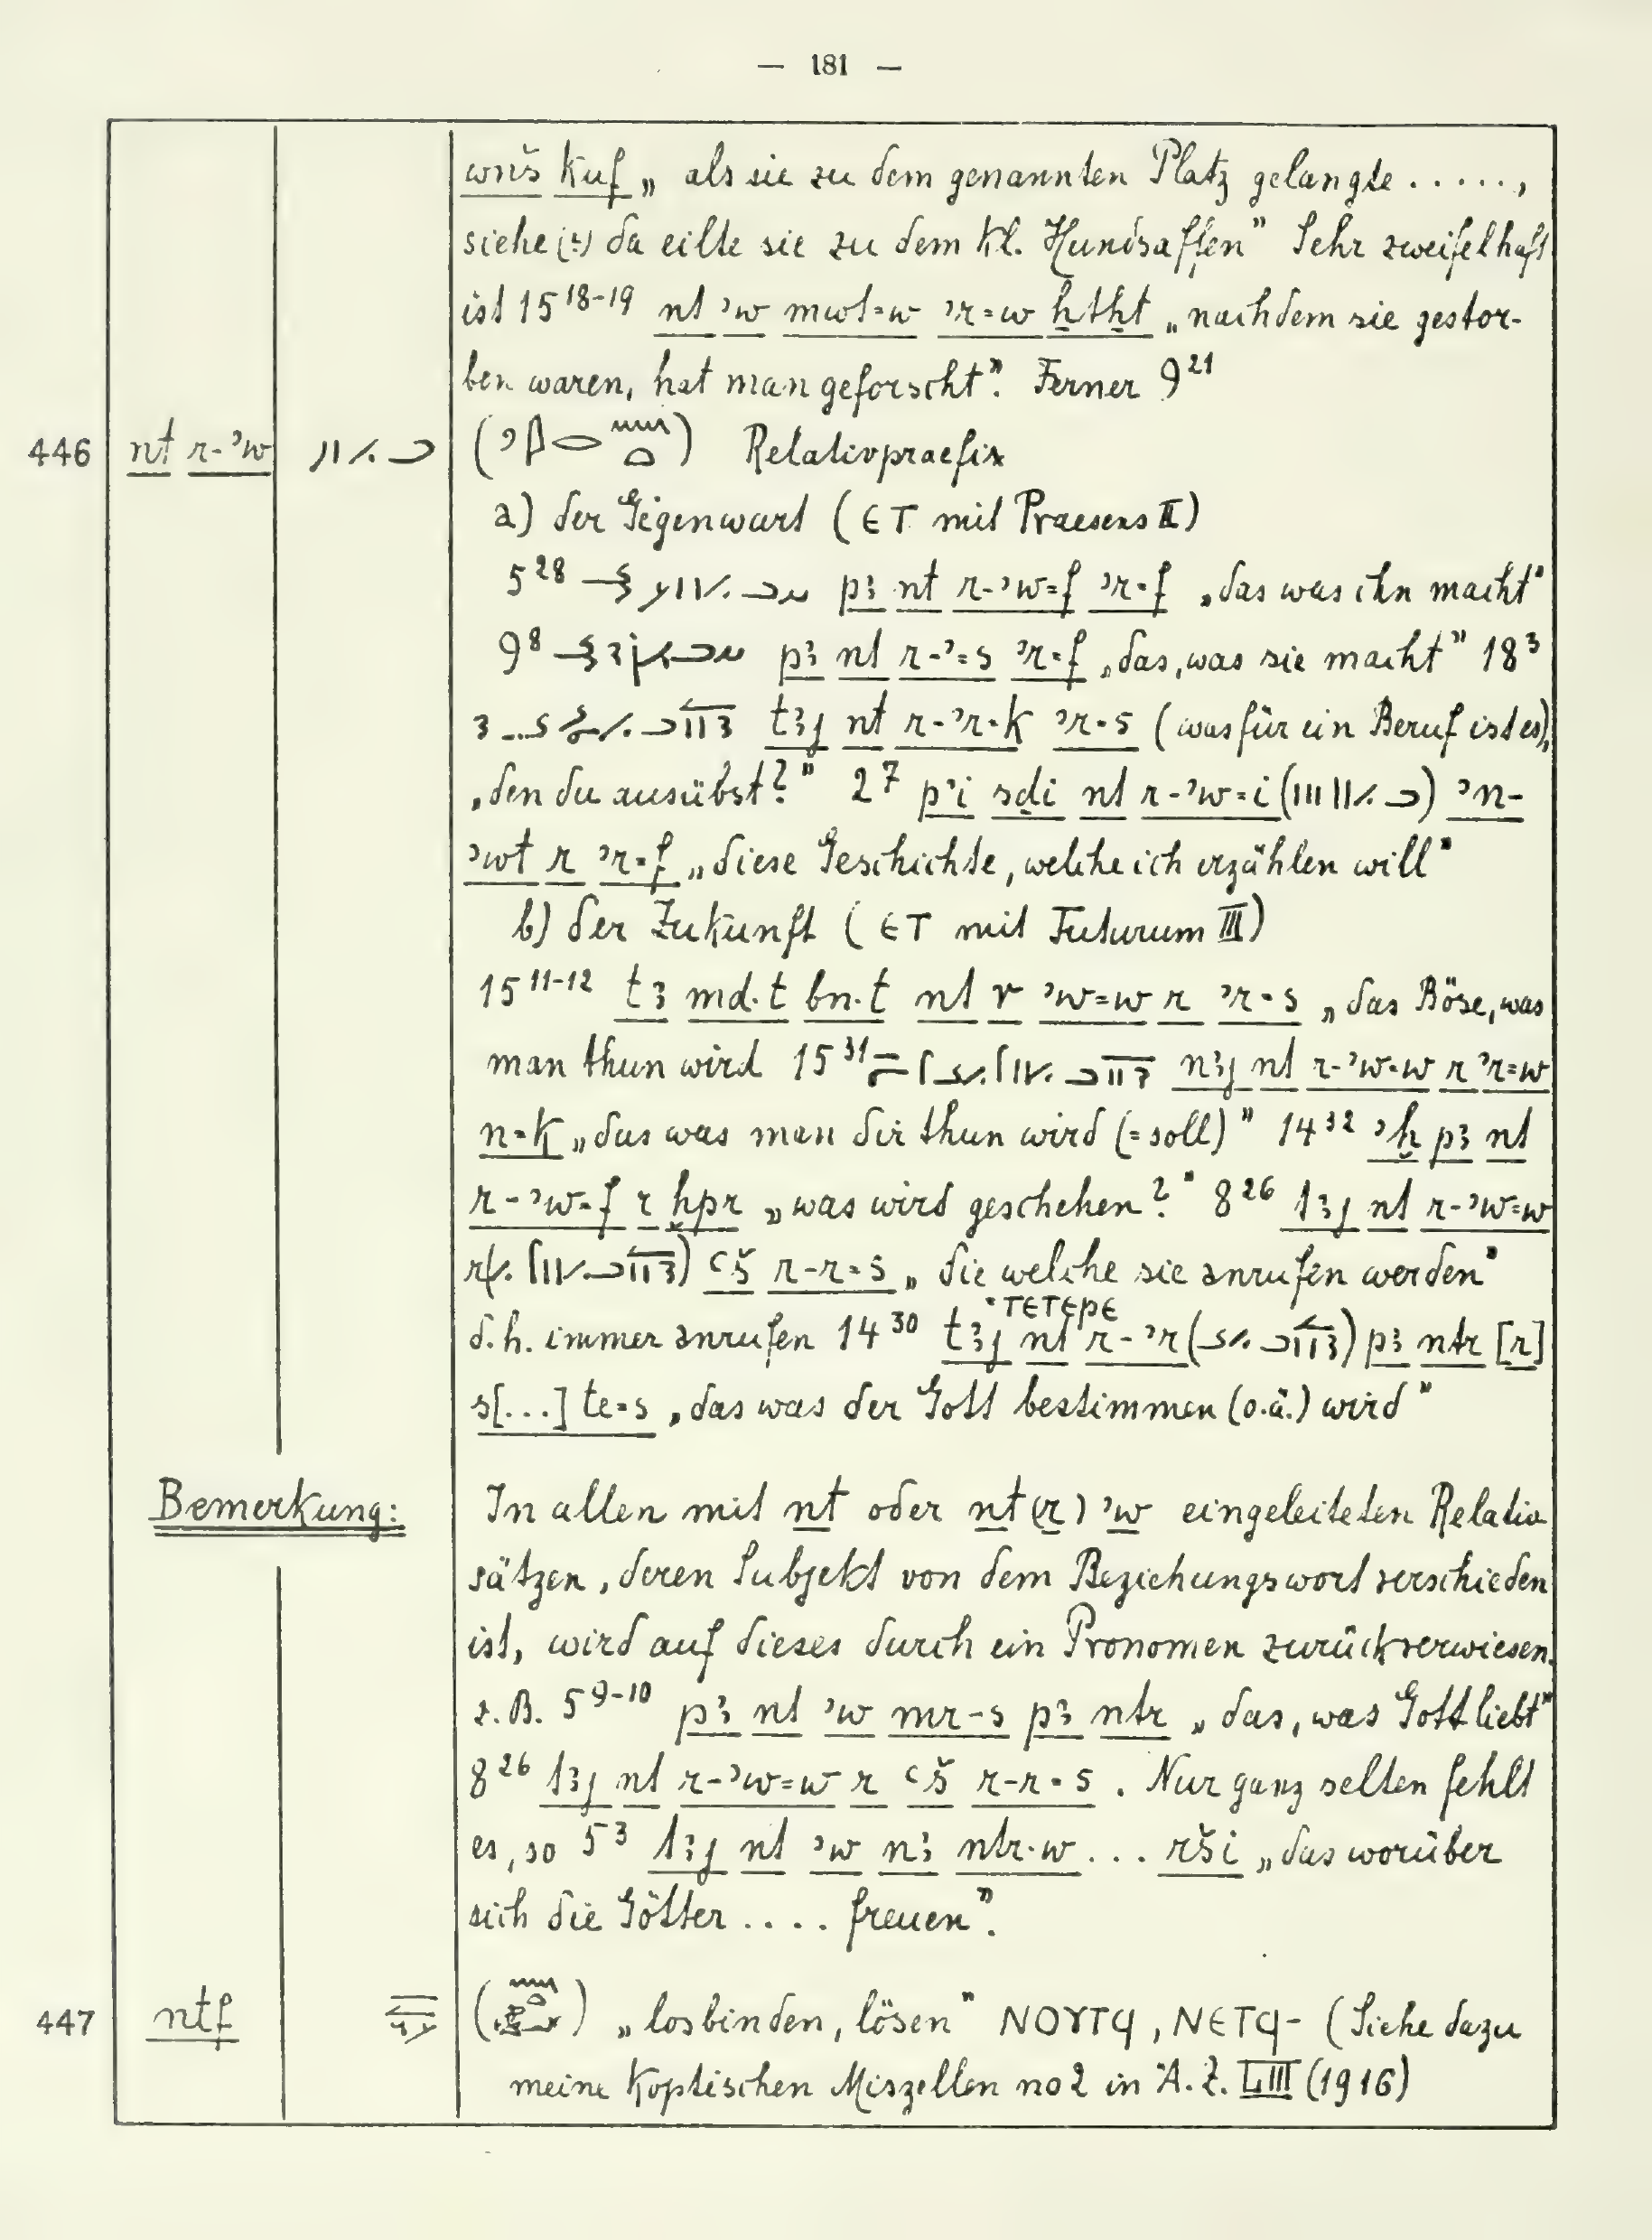 — 181 —
wnš kuf „ als sie zu dem genannten Platz gelangte .....,
siehe (?) da eilte sie zu dem kl. Hundsaffen" Sehr zweifelhaft
ist 15¹⁸⁻¹⁹ nt ꜥw mwt=w ꜥr=w ḫtḫt „nachdem sie gestor-
ben waren, hat man geforscht". Ferner 9²¹
446 nt r-ꜣw ( ) Relativpraefix
a) der Gegenwart (ⲉⲧ mit Praesens II)
5²⁸ pꜣ nt r-ʾw=f ʾr=f „das was ihn macht"
9⁸ pꜣ nt r-ʾ=s ʾr=f „das, was sie macht" 18³
tꜣj nt r-ʾr=k ʾr=s (was für ein Beruf ist es),
„den du ausübst?" 2⁷ pʾi sdi nt r-ʾw=i ( ) ʾn-
ʾwt r ʾr=f „diese Geschichte, welche ich erzählen will"
b) der Zukunft (ⲉⲧ mit Futurum III)
15¹¹⁻¹² tꜣ md.t bn.t nt r ʾw=w r ʾr=s „das Böse, was
man thun wird 15³¹ nꜣj nt r-ʾw=w r ʾr=w
n=k „das was man dir thun wird (=soll)" 14³² ʾḫ pꜣ nt
r-ʾw=f r ḫpr „was wird geschehen?" 8²⁶ tꜣj nt r-ʾw=w
r( ) ꜥš r-r=s „die welche sie anrufen werden"
ⲧⲉⲧⲉⲣⲉ
d.h. immer anrufen 14³⁰ tꜣj nt r-ʾr( ) pꜣ ntr [r]
s[...] te=s „das was der Gott bestimmen (o.ä.) wird"
Bemerkung: In allen mit nt oder nt (r) ʾw eingeleiteten Relativ
sätzen, deren Subjekt von dem Beziehungswort verschieden
ist, wird auf dieses durch ein Pronomen zurückverwiesen.
z.B. 5⁹⁻¹⁰ pꜣ nt ʾw mr-s pꜣ ntr „das, was Gott liebt"
8²⁶ tꜣj nt r-ʾw=w r ꜥš r-r=s. Nur ganz selten fehlt
es, so 5³ tꜣj nt ʾw nꜣ ntr.w ... rši „das worüber
sich die Götter .... freuen".
447 ntf ( ) „losbinden, lösen" ⲛⲟⲩⲧϥ, ⲛⲉⲧϥ- (Siehe dazu
meine Koptischen Miszellen no 2 in Ä.Z. LIII (1916)